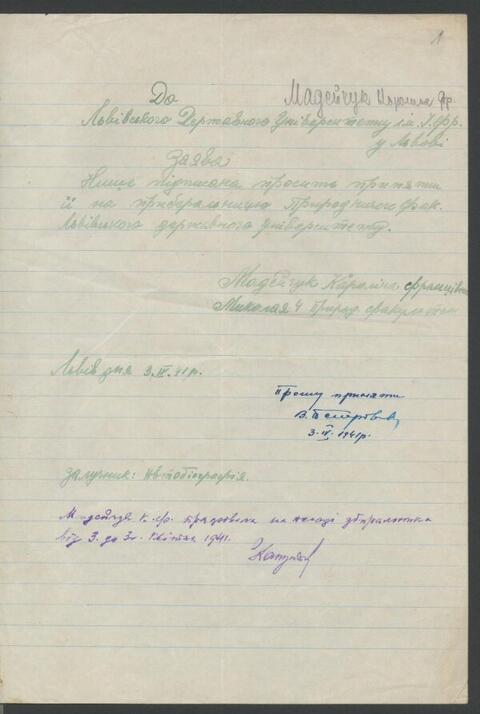 1
Мадейчук Кароліна Фр.
До
Львівського Державного Університету ім. І. Фр.
у Львові
Заява
Нище підписана просить приняти
її на прибральницю Природничого фак.
Львівського державного Університету.
Мадейчук Кароліна Францівна
Миколая 4 Природ. факультет
Львів дня 3.IV.41 р.
Прошу приняти
3.IV.1941р.
залучник: Автобіографія.
Мадейчук К. Фр. працювала на посаді збиральника
від 3. до 30. квітня 1941.